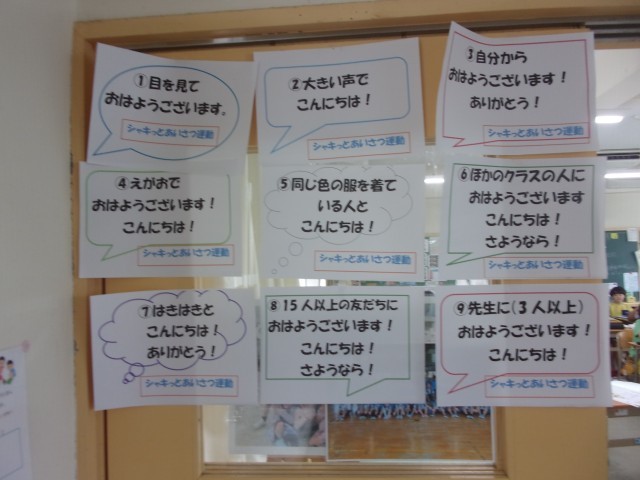 ①目を見て
おはようございます。
シャキっとあいさつ運動
②大きい声で
こんにちは！
シャキっとあいさつ運動
③自分から
おはようございます！
ありがとう！
シャキっとあいさつ運動
④えがおで
おはようございます！
こんにちは！
シャキっとあいさつ運動
⑤同じ色の服を着て
いる人と
こんにちは！
シャキっとあいさつ運動
6ほかのクラスの人に
おはようございます
こんにちは！
さようなら！
シャキっとあいさつ運動
⑦はきはきと
こんにちは！
ありがとう！
シャキっとあいさつ運動
8 15人以上の友だちに
おはようございます！
こんにちは！
さようなら！
⑨先生に(3人以上)
おはようございます！
こんにちは！
シャキっとあいさつ運動